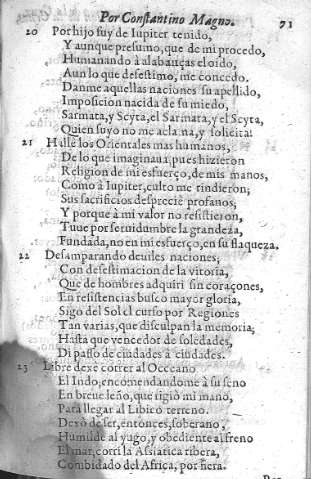 Por Constantino Magno. 71
20 Por hijo fuy de Iupiter tenido,
Y aunque presumo, que de mi procedo,
Humanando à alabanças el oìdo,
Aun lo que desestimo, me concedo.
Danme aquellas naciones su apellido,
Imposicion nacida de su miedo,
Sarmata, y Scyta, el Sarmata, y el Scyta,
Quien suyo no me aclama, y solicita.
21 Hallè los Orientales mas humanos,
De lo que imaginaua pues hizieron
Religion de mi esfuerço, de mis manos,
Como à Iupiter, culto me rindieron;
Sus sacrificios despreciè profanos,
Y porque à mi valor no resistieron,
Tuue por seruidumbre la grandeza,
Fundada, no en mi esfuerço, en su flaqueza.
22 Desamparando deuiles naciones;
Con desestimacion de la vitoria,
Que de hombres adquiri sin coraçones,
En resistencias busco mayor gloria,
Sigo del Sol el curso por Regiones
Tan varias, que disculpan la memoria;
Hasta que vencedor de soledades,
Di passo de ciudades à ciudades.
23 Libre dexè correr al Occeano
El Indo, encomendandome à su seno
En breue leño, que rigiò mi mano,
Para llegar al Libico terreno.
Dexò de ser, entonces, soberano,
Humilde al yugo, y obediente al freno
El mar, corri la Assiatica ribera,
Combidado del Africa, por fiera.